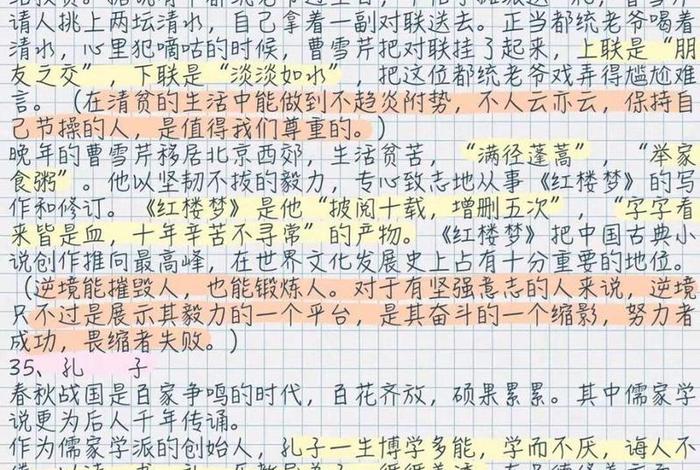 请人挑上两坛清水，自己拿着一副对联送去。正当都统老爷喝着
清水，心里犯嘀咕的时候，曹雪芹把对联挂了起来，上联是“朋
友之交”，下联是“淡淡如水”，把这位都统老爷戏弄得尴尬难
言。（在清贫的生活中能做到不趋炎附势，不人云亦云，保持自
己节操的人，是值得我们尊重的。）
晚年的曹雪芹移居北京西郊，生活贫苦，“满径蓬蒿”，“举家
食粥”。他以坚韧不拔的毅力，专心致志地从事《红楼梦》的写
作和修订。《红楼梦》是他“披阅十载，增删五次”，“字字看
来皆是血，十年辛苦不寻常”的产物。《红楼梦》把中国古典小
说创作推向最高峰，在世界文化发展史上占有十分重要的地位。
（逆境能摧毁人，也能锻炼人。对于有坚强意志的人来说，逆境
只不过是展示其毅力的一个平台，是其奋斗的一个缩影，努力者
成功，畏缩者失败。）
35、孔 子
春秋战国是百家争鸣的时代，百花齐放，硕果累累。其中儒家学
说更为后人千年传诵。
作为儒家学派的创始人，孔子一生博学多能，学而不厌，诲人不